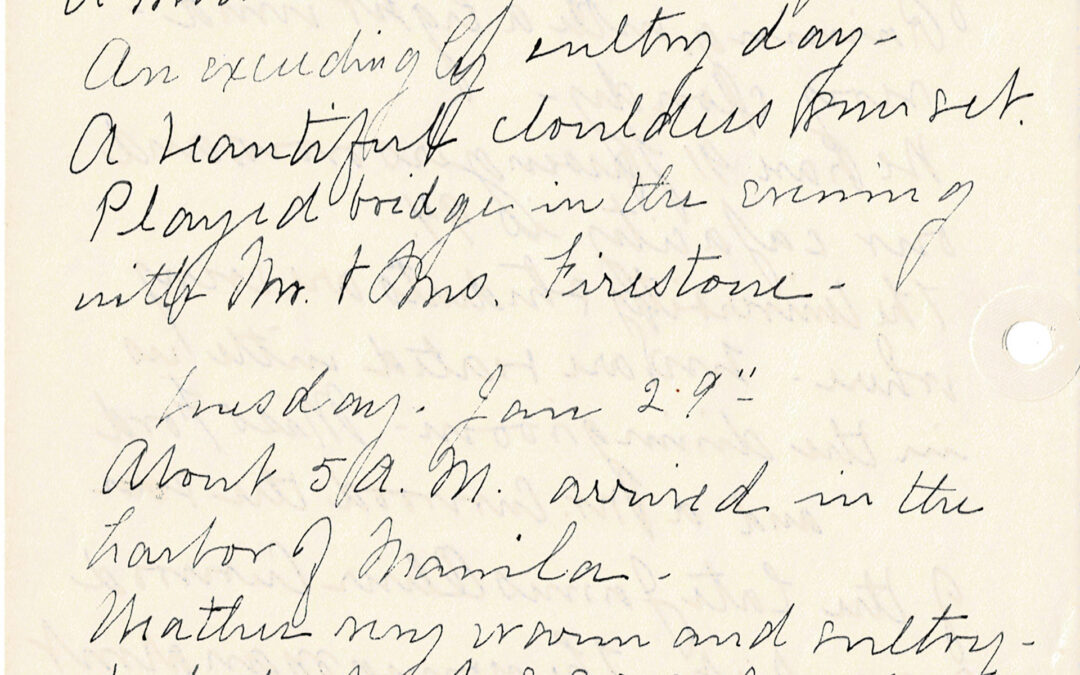 An exceedingly sultry day -
A beautiful cloudless sunset.
Played bridge in the evening
with Mr. & Mrs. Firestone -
Tuesday. Jan 29"
About 5 A. M. arrived in the
harbor of Manila -
Weather very warm and sultry -